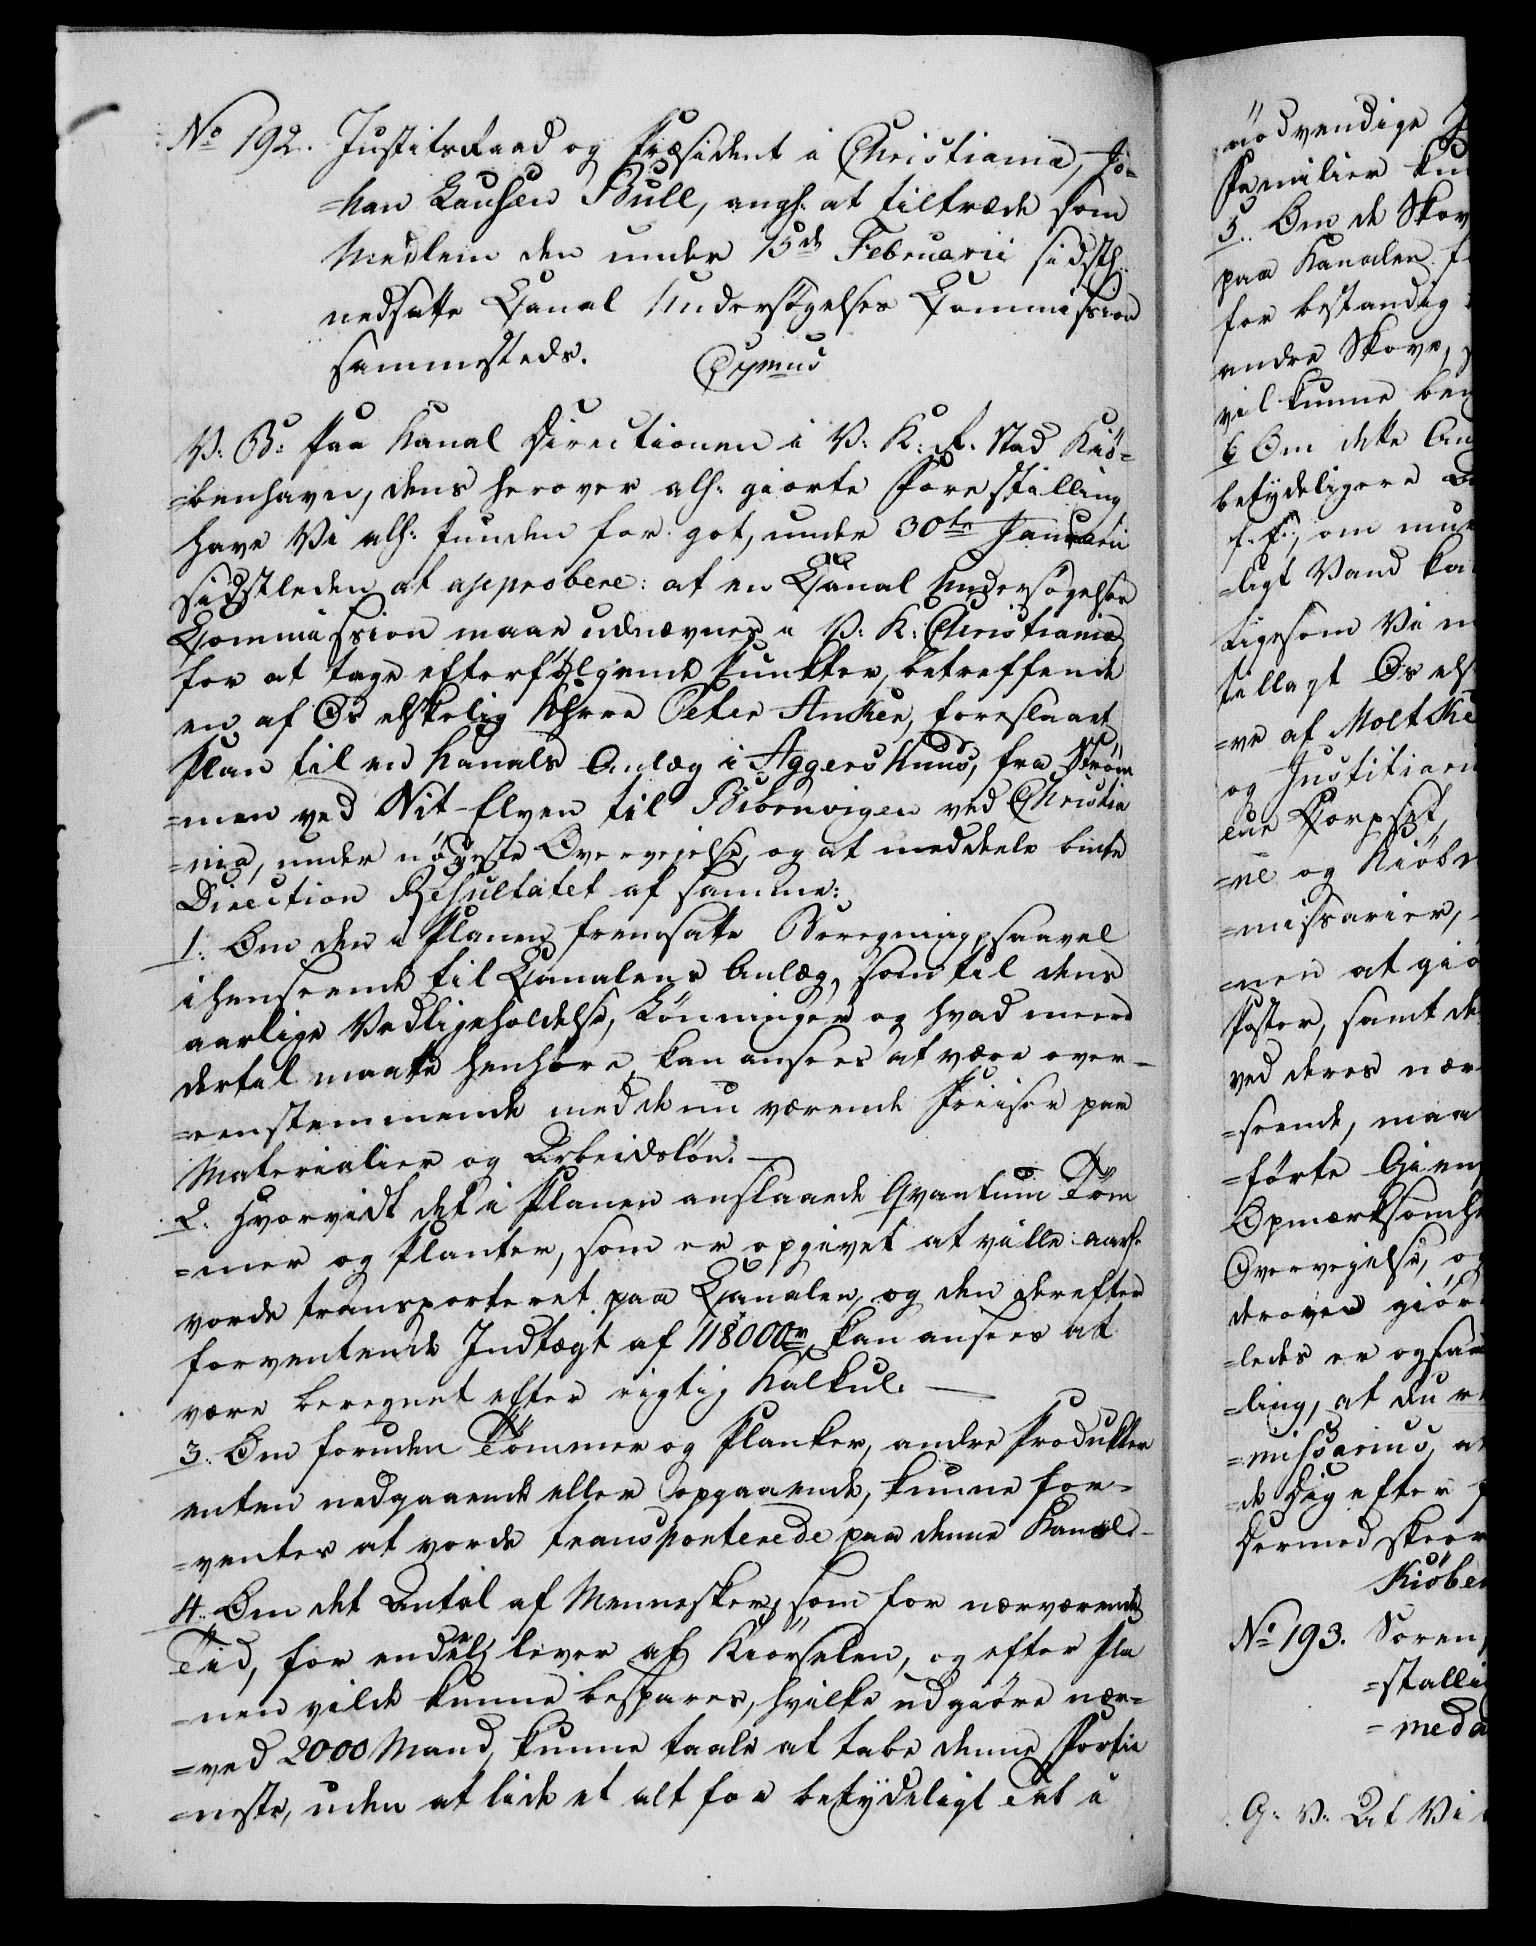 No 192. Justitsraad og Præsident i Christiania, Jo-
=han Lausen Bull, angl. at tiltræde som
Medlem den under 15de Februarii sidstl.
nedsatte Canal Undersøgelses Commission
sammesteds. Cymus
V. G: Paa Kanal Directionen i V: K: R. Stad Kiø-
=benhavn, dens herover alh. giorte Forestilling
have Vi alh: funden for got, under 30te Januarii
sidstleden at approbere: at en Canal Undersøgelses
Commission maae udnævnes i V: K: Christiania
for at tage efterfølgende Punkter, betreffende
en af Os elskelig Herre Peter Anker, foreslaaet
Plan til en Kanals Anlæg i Aggershuus, fra Strøm
=men ved Nit-Elven til Biørnvigen ved Christia
=nia, under nøyeste Overvejelse, og at meddeele bemte
Direction Resultatet af samme:
1. Om den i Planen fremsatte Beregning, saavel
i henseende til Canalens Anlæg, som til dens
aarlige Vedligeholdelse, Lønninger og hvad meere
dertil maatte henhøre, kan ansees at være over-
=eenstemmende med de nu værende Priiser paa
Materialier og Arbeidsløn. —
2. Hvorvidt det i Planen anslaaede Qvantum Tøm
=mer og Planker, som er opgivet at ville aarl.
vorde transporteret paa Canalen, og den derefter
forventende Indtægt af 118000 rd, kan ansees at
være beregnet efter rigtig Kalkul. —
3. Om foruden Tømmer og Planker, andre Produkter
enten nedgaaende eller opgaaende, kunne for-
=ventes at vorde transporterede paa denne Kanal. —
4. Om det Antal af Mennesker, som for nærværende
Tid, for endeel lever af Kiørselen, og efter Pla
=nen vilde kunne bespares, hvilke udgiøre nær=
=ved 2000 Mand, kunne taale at tabe denne Fortie
=neste, uden at lide et alt for betydeligt Tab i
nødvendige
Familier kun
5. Om de Skov
paa Kanalen
for bestandig
andre Skove,
vil kunne
6 Om dette An
betydeligere
f. f., om
=ligt Vand ka
ligesom Vi
tillagt Os els
=ve af Moltke
og Justitiari
eur Korpset,
=ne og Kiøb
=missarier,
=nen at giø
Poster, samt de
ved deres nær
=seende, maa
=førte Gien
Opmærksomhe
Overvejelse, og
derover giør
=ledes er ogsaa
=ling, at du
=missarius,
=de Dig efter
Dermed skeer
Kiøben
No 193. Søren
=stalli
=meda
G: V: At Vi